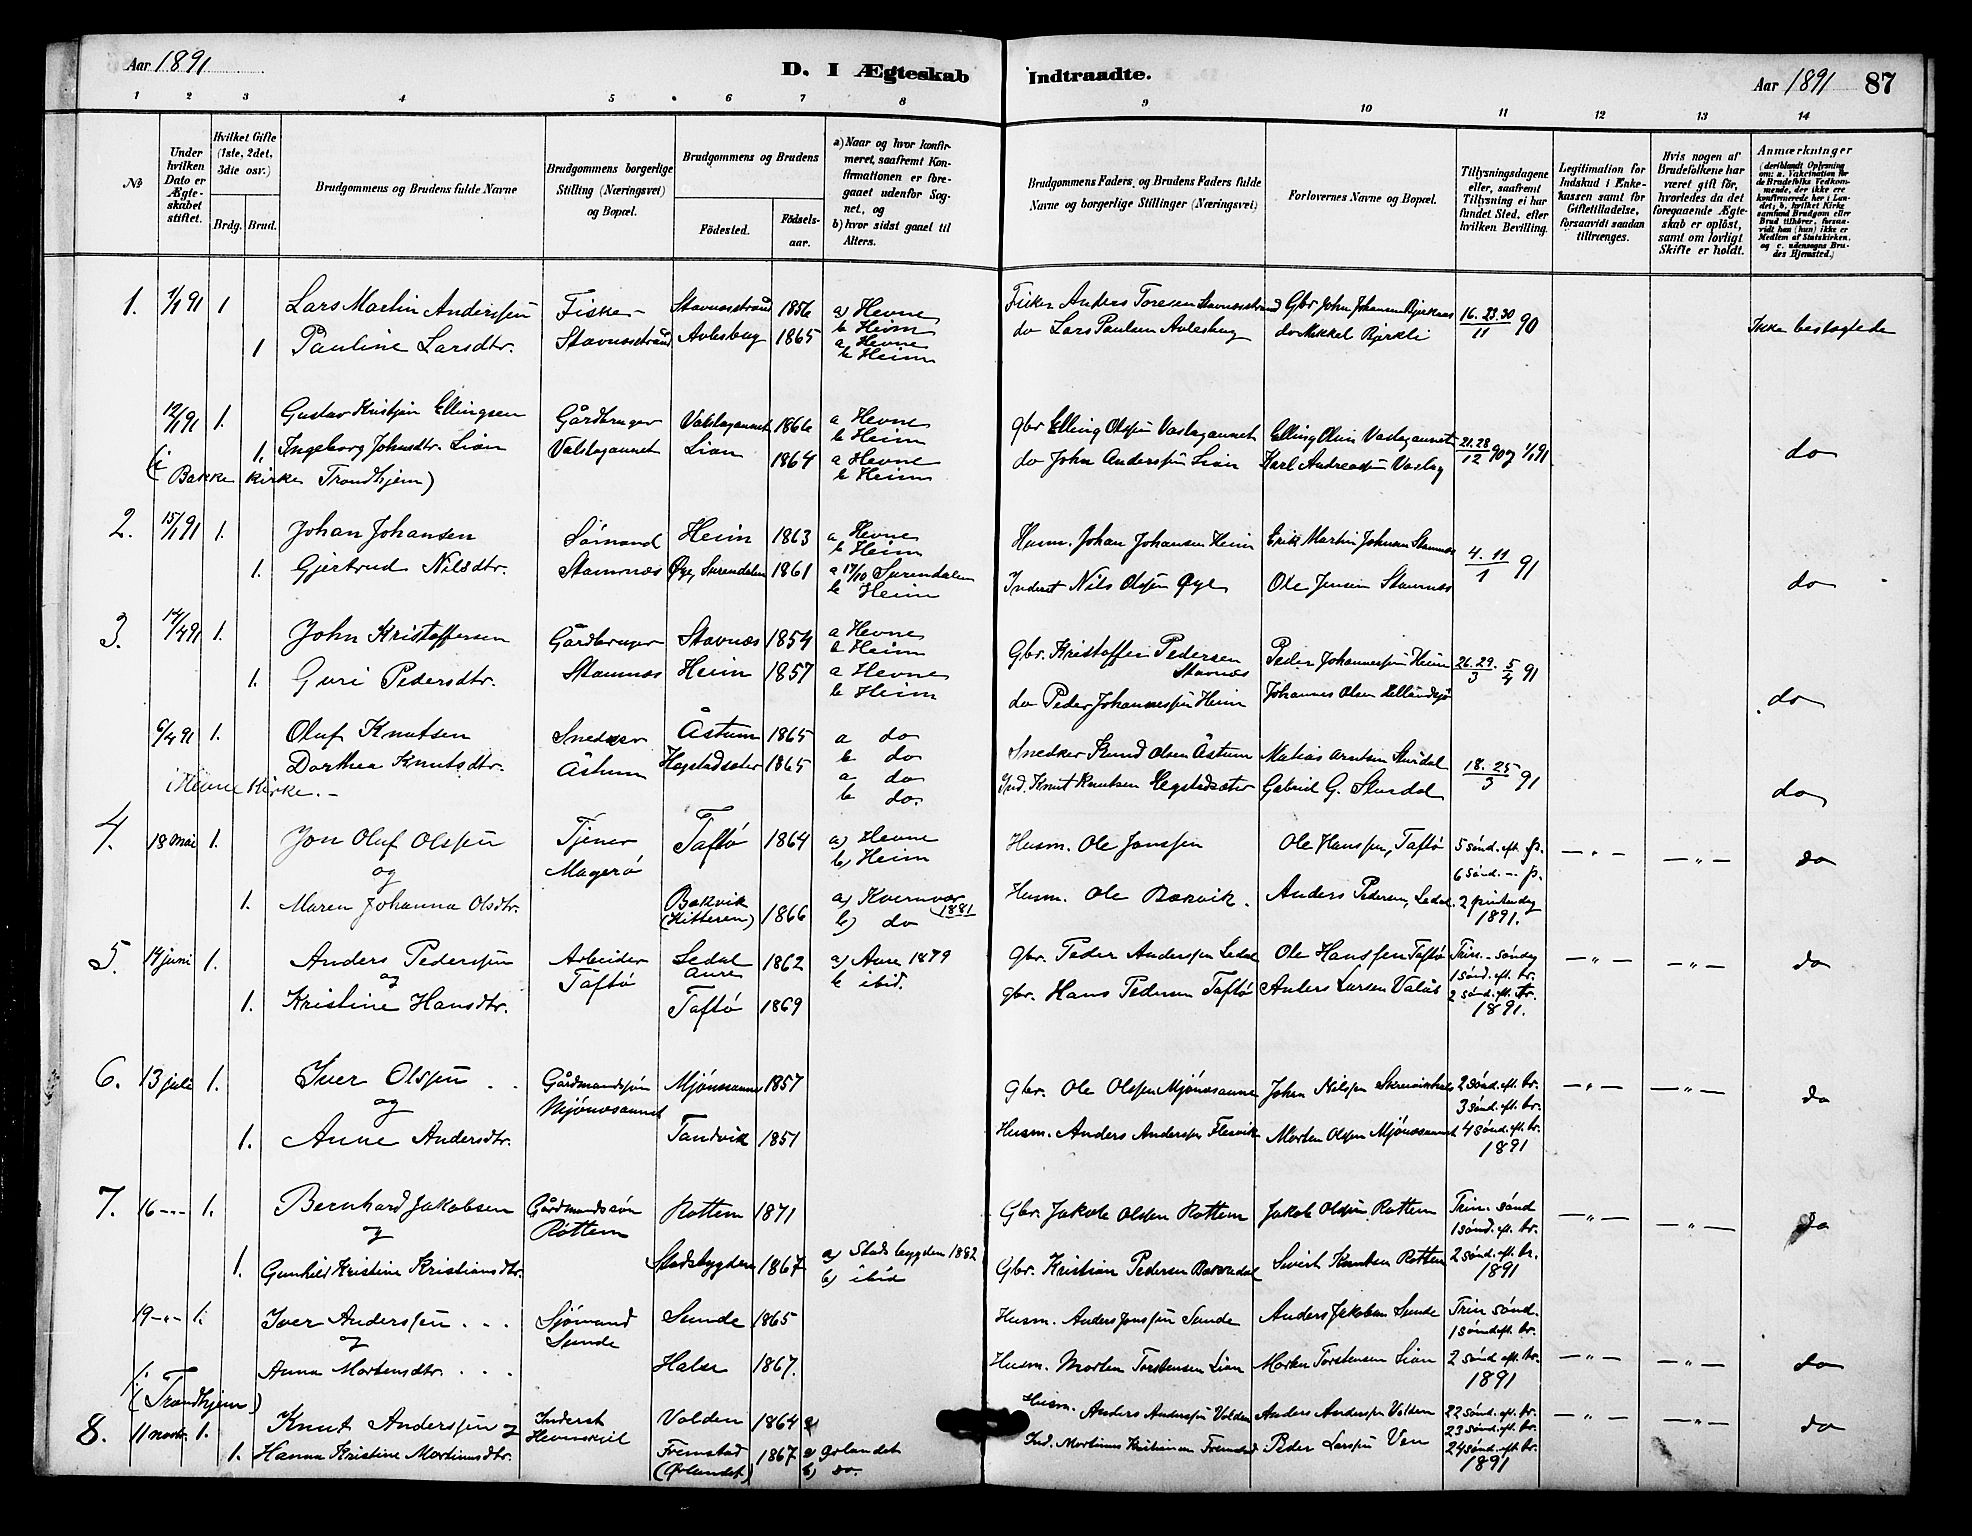 Aar 1891
D. I Ægteskab Indtraadte.
Aar 1891 87
1 2 3 4 5 6 7 8 9 10 11 12 13 14
No
Under hvilken Dato er Ægteskabet stiftet.
Hvilket Gifte (1ste, 2det, 3die osv.)
Brdg. Brud.
Brudgommens og Brudens fulde Navne
Brudgommens borgerlige Stilling (Næringsvei) og Bopæl.
Brudgommens og Brudens
Fødested.
Fødselsaar.
a) Naar og hvor konfirmeret, saafremt Konfirmationen er foregaaet udenfor Sognet, og
b) hvor sidst gaaet til Alters.
Brudgommens Faders og Brudens Faders fulde Navne og borgerlige Stillinger (Næringsvei)
Forlovernes Navne og Bopæl.
Tillysningsdagene eller, saafremt Tillysning ei har fundet Sted, efter hvilken Bevilling.
Legitimation for Indskud i Enkekassen samt for Giftetilladelse, forsaavidt saadan tiltrænges.
Hvis nogen af Brudefolkene har været gift før, hvorledes da det foregaaende Ægteskab er opløst, samt om lovligt Skifte er holdt.
Anmærkninger (deriblandt Oplysning om: a. Vakcination for de Brudefolks Vedkommende, der ikke ere konfirmerede her i Landet; b. hvilket Kirkesamfund Brudgom eller Brud tilhører, forsaavidt han (hun) ikke er Medlem af Statskirken, og c. udensogns Brudes Hjemsted.)
1. 1/1 91 1 Lars Martin Anderssen Fisker Stavnesstrand 1856 a) Hevne b Heim Fisker Anders Toresen Stavnesstrand Gbr John Johansen 16. 23. 30/11 90
1 Pauline Larsdtr. Stavnesstrand 1865 a Hevne b Heim do Lars Paulsen do Mikkel Bjerkli Ikke beslægtede
12/1 91 1. Gustav Kristjan Ellingsen Gårdbruger 1866 a Hevne b Heim gbr Elling Olssen 21. 28/12 90 og 1/1 91
1. Ingeborg Johnsdtr. Lian Lian 1864 a Hevne b Heim do John Anderssen Lian Karl Andreassen do
(i Bakke Kirke Trondhjem)
2. 15/1 91 1. Johan Johansen Sømand Heim 1863 a Hevne b Heim Husm. Johan Johansen Heim Erik Martin Johnsen Stamnes 4. 11/1 91
1. Gjertrud Nilsdtr. Stamnæs Øye, Surendalen 1861 a 17/10 Surendalen b Heim Inderst Nils Olssen Øye Ole Jensen Stamnæs do
3. 14/4 91 1. John Kristoffersen Gårdbruger Stavnæs 1854 a Hevne b Heim Gbr. Kristoffer Pedersen Stavnæs Peder Johannessen Heim 26. 29/3 5/4 91
1. Guri Pedersdtr. Stamnæs Heim 1857 a Hevne b Heim do Peder Johannessen Heim Johannes Olsen do
6/4 91 1. Oluf Knutsen Snedker Åstum 1865 a do b do Snedker Knud Olsen Åstum Matias Arntsen 18. 25/3 91
Dorthea Knutsdtr. Åstum 1865 a do b do. Ind. Knut Knutsen Gabriel G. do
i Hevne Kirke.
4. 18 mai 1. Jon Oluf Olssen Tjener Taftø 1864 a) Hevne b) Heim Husm. Ole Jonssen Ole Hanssen, Taftø 5 sønd. eft. p.
og Magerø 6 sønd. — p. — " — — " — do
1. Maren Johanna Olsdtr. Bækvik (Hitteren) 1866 a) Kvernvær 1881 b) do Husm. Ole Bækvik. Anders Pedersen, Ledal 2 pintsedag 1891.
5. 14 juni 1. Anders Pederssen Arbeider Ledal Aure 1862 a) Aure 1879 b ibid. gbr. Peder Anderssen Ledal Ole Hanssen Taftø Trin. søndag
og Taftø 1 sønd. eft. tr. — " — — " — do
1. Kristine Hansdtr. Taftø 1869 gbr. Hans Pedersen Taftø Anders Larsen 2 sønd. eft. tr. 1891.
6. 13 juli 1. Iver Olssen Gårdmandssøn 1857 gbr. Ole Olssen John Nilssen 2 sønd. eft. tr.
og 3 sønd. eft. tr. — " — — " — do
1. Anne Andersdtr. Tandvik 1851 Husm. Anders Anderssen Flesvik Morten Olssen 4 sønd. eft. tr. 1891
7. 16 — 1. Bernhard Jakobsen Gårdmandssøn Rottem 1871 Gbr. Jakob Olssen Rottem Jakob Olssen Rottem Trin. sønd
og Rottem 1 sønd. eft. tr. — " — — " — do
1. Gunhild Kristine Kristiansdtr. Stadsbygden 1867 a) Stadsbygden 1882 b) ibid Gbr. Kristian Pedersen Sivert Knutsen Rottem 2 sønd. eft. tr. 1891
19 — " — 1. Iver Anderssen Sjømand Sunde 1865 Husm. Anders Jonssen Sunde Anders Jakobsen Sunde Trin sønd.
og Sunde 1 sønd eft. tr. — " — — " — do
Anna Mortensdtr. Halse 1867. Husm. Morten Torstensen Lian Morten Torstensen Lian 2 sønd. eft. tr. 1891
(i Trondhjem)
8. 11 novbr. 1. Knut Anderssen og Inderst Volden 1864 Husm. Anders Anderssen Volden Anders Anderssen Volden 22 sønd. eft. tr. 23 sønd. eft. tr. — " — — " — do
1. Hanna Kristine Martinusdtr. Fremstad (Ørlandet) 1867 a) Ørlandet b) do. Ind. Martinus Kristiansen Fremstad Peder Larssen Ven 24 sønd. eft. tr. 1891